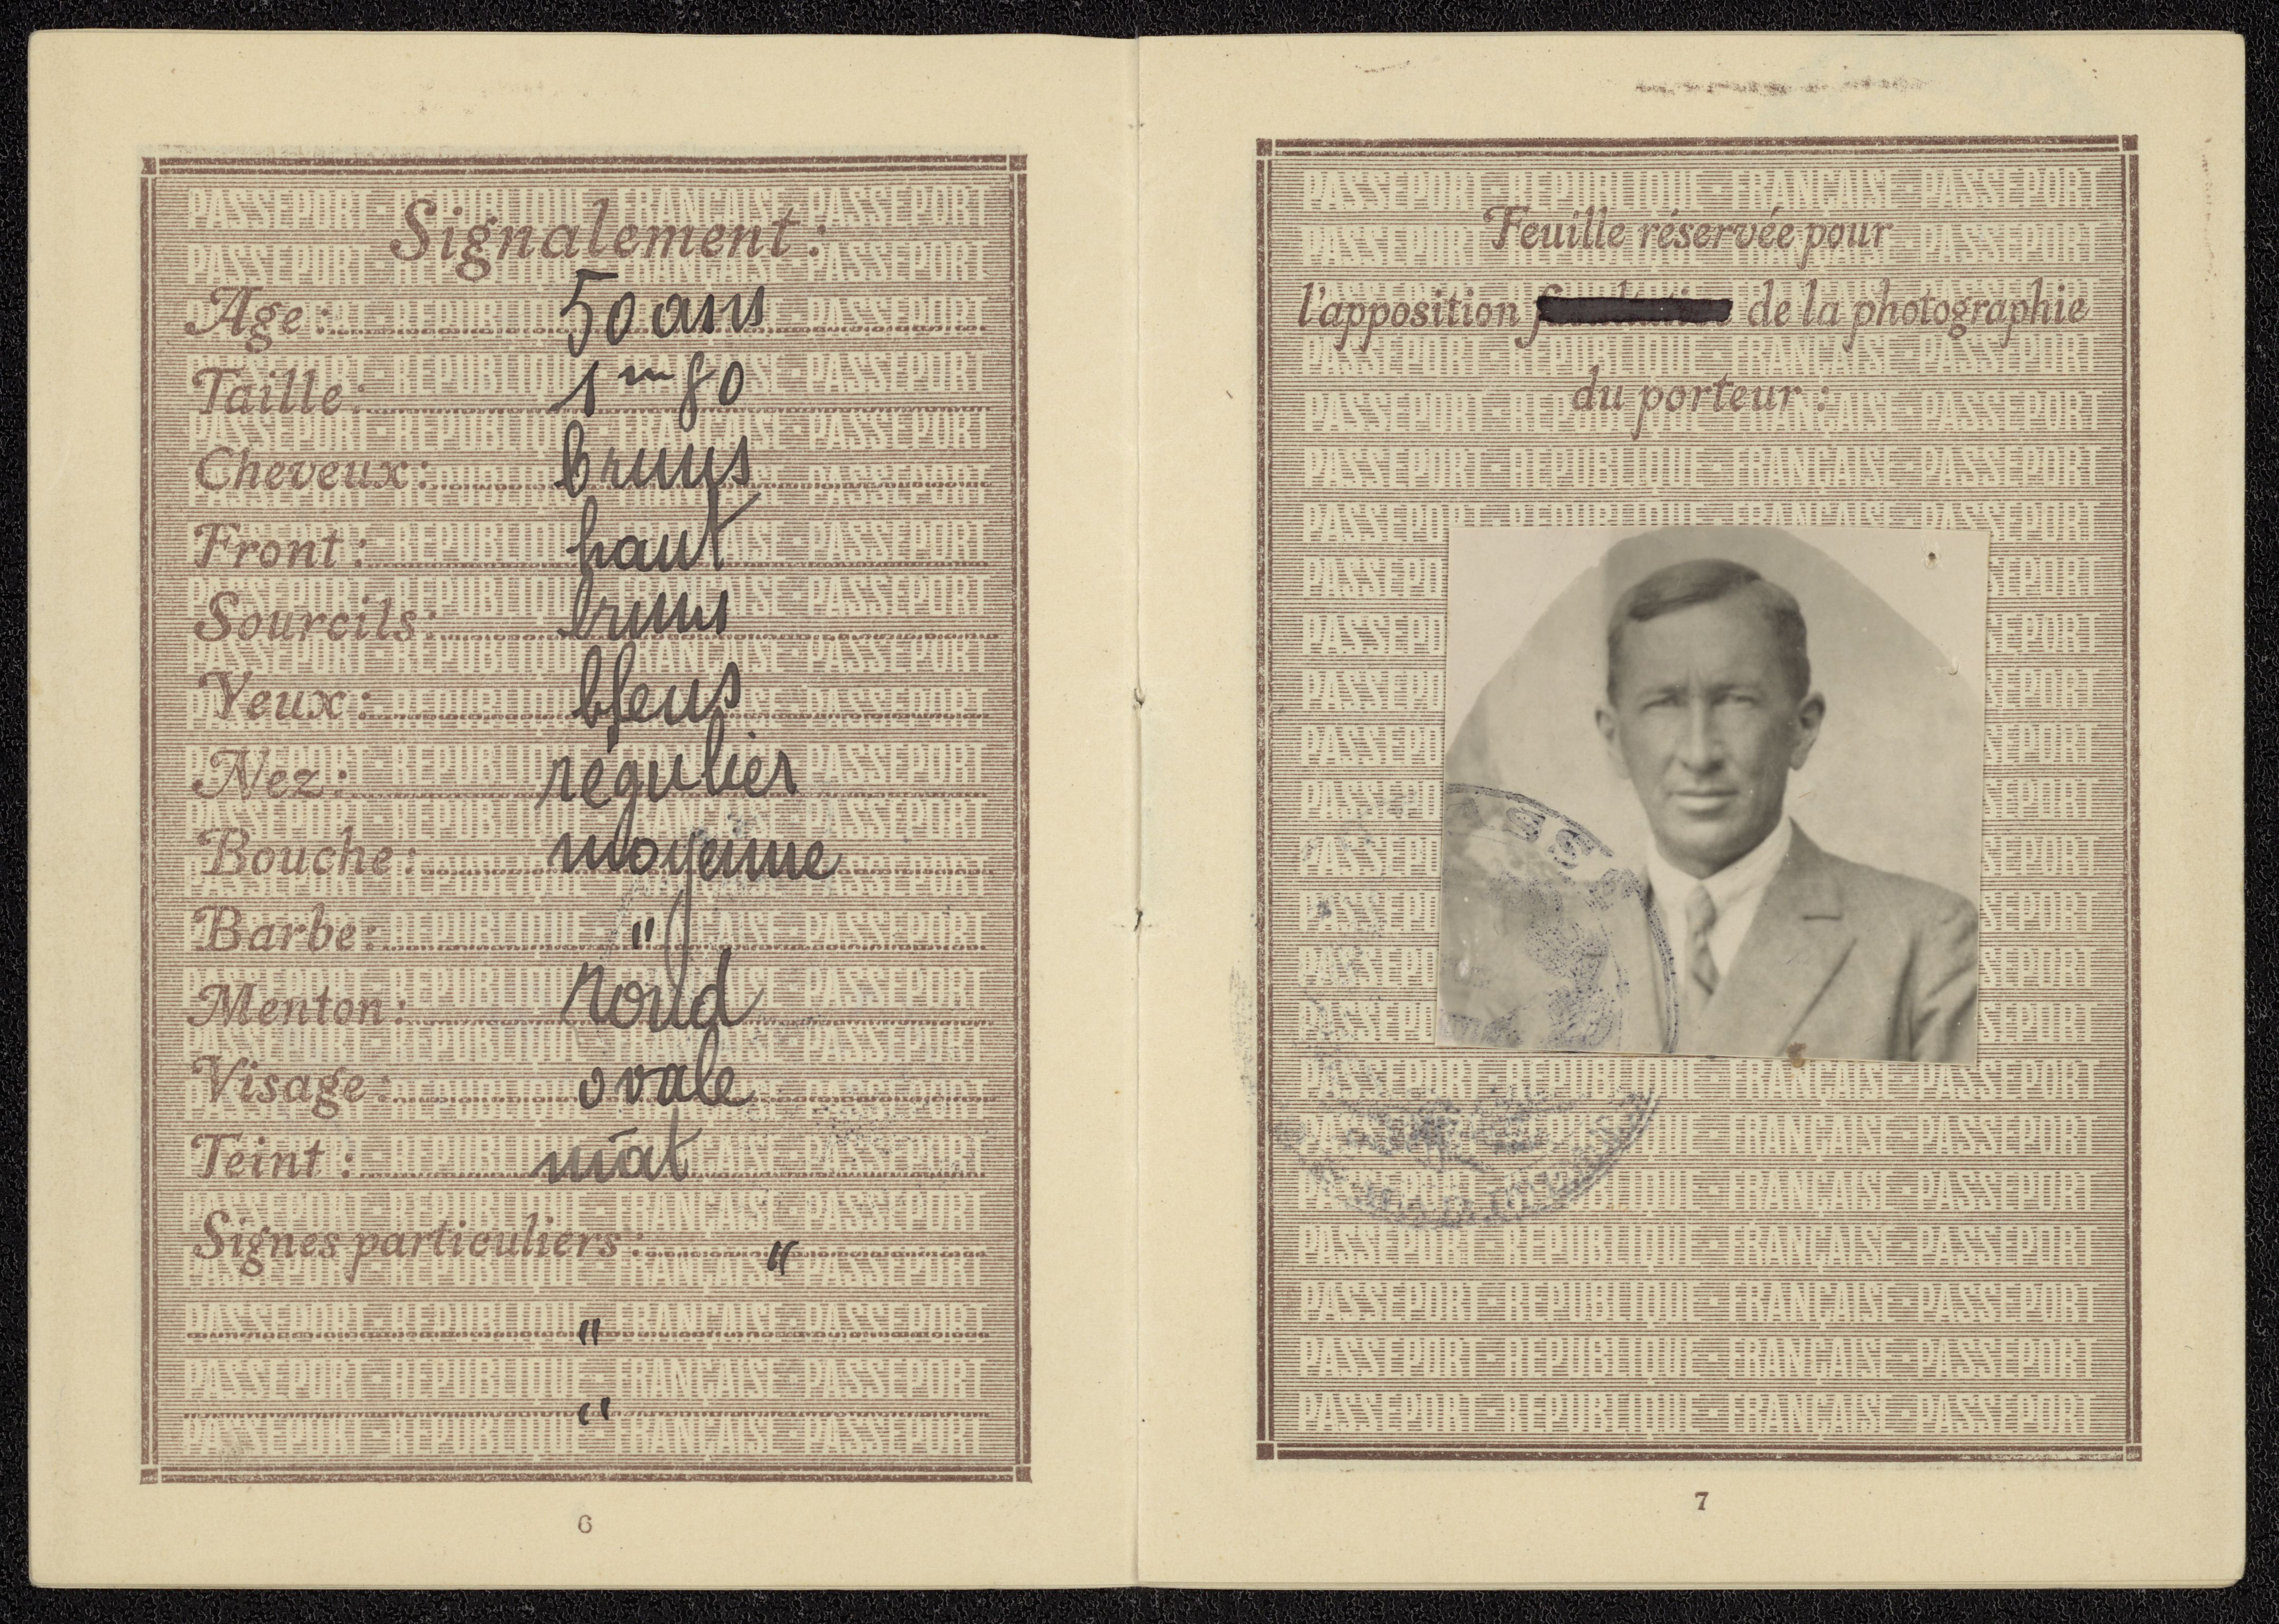 Signalement :
Age : 50 ans
Taille : 1 m 80
Cheveux : bruns
Front : haut
Sourcils : bruns
Yeux : bleus
Nez : regulier
Bouche : moyenne
Barbe : "
Menton : rond
Visage : ovale
Teint : mat
Signes particuliers : "
"
"
6
Feuille réservée pour
l'apposition de la photographie
du porteur :
PASSEPORT - REPUBLIQUE - FRANÇAISE - PASSEPORT
7